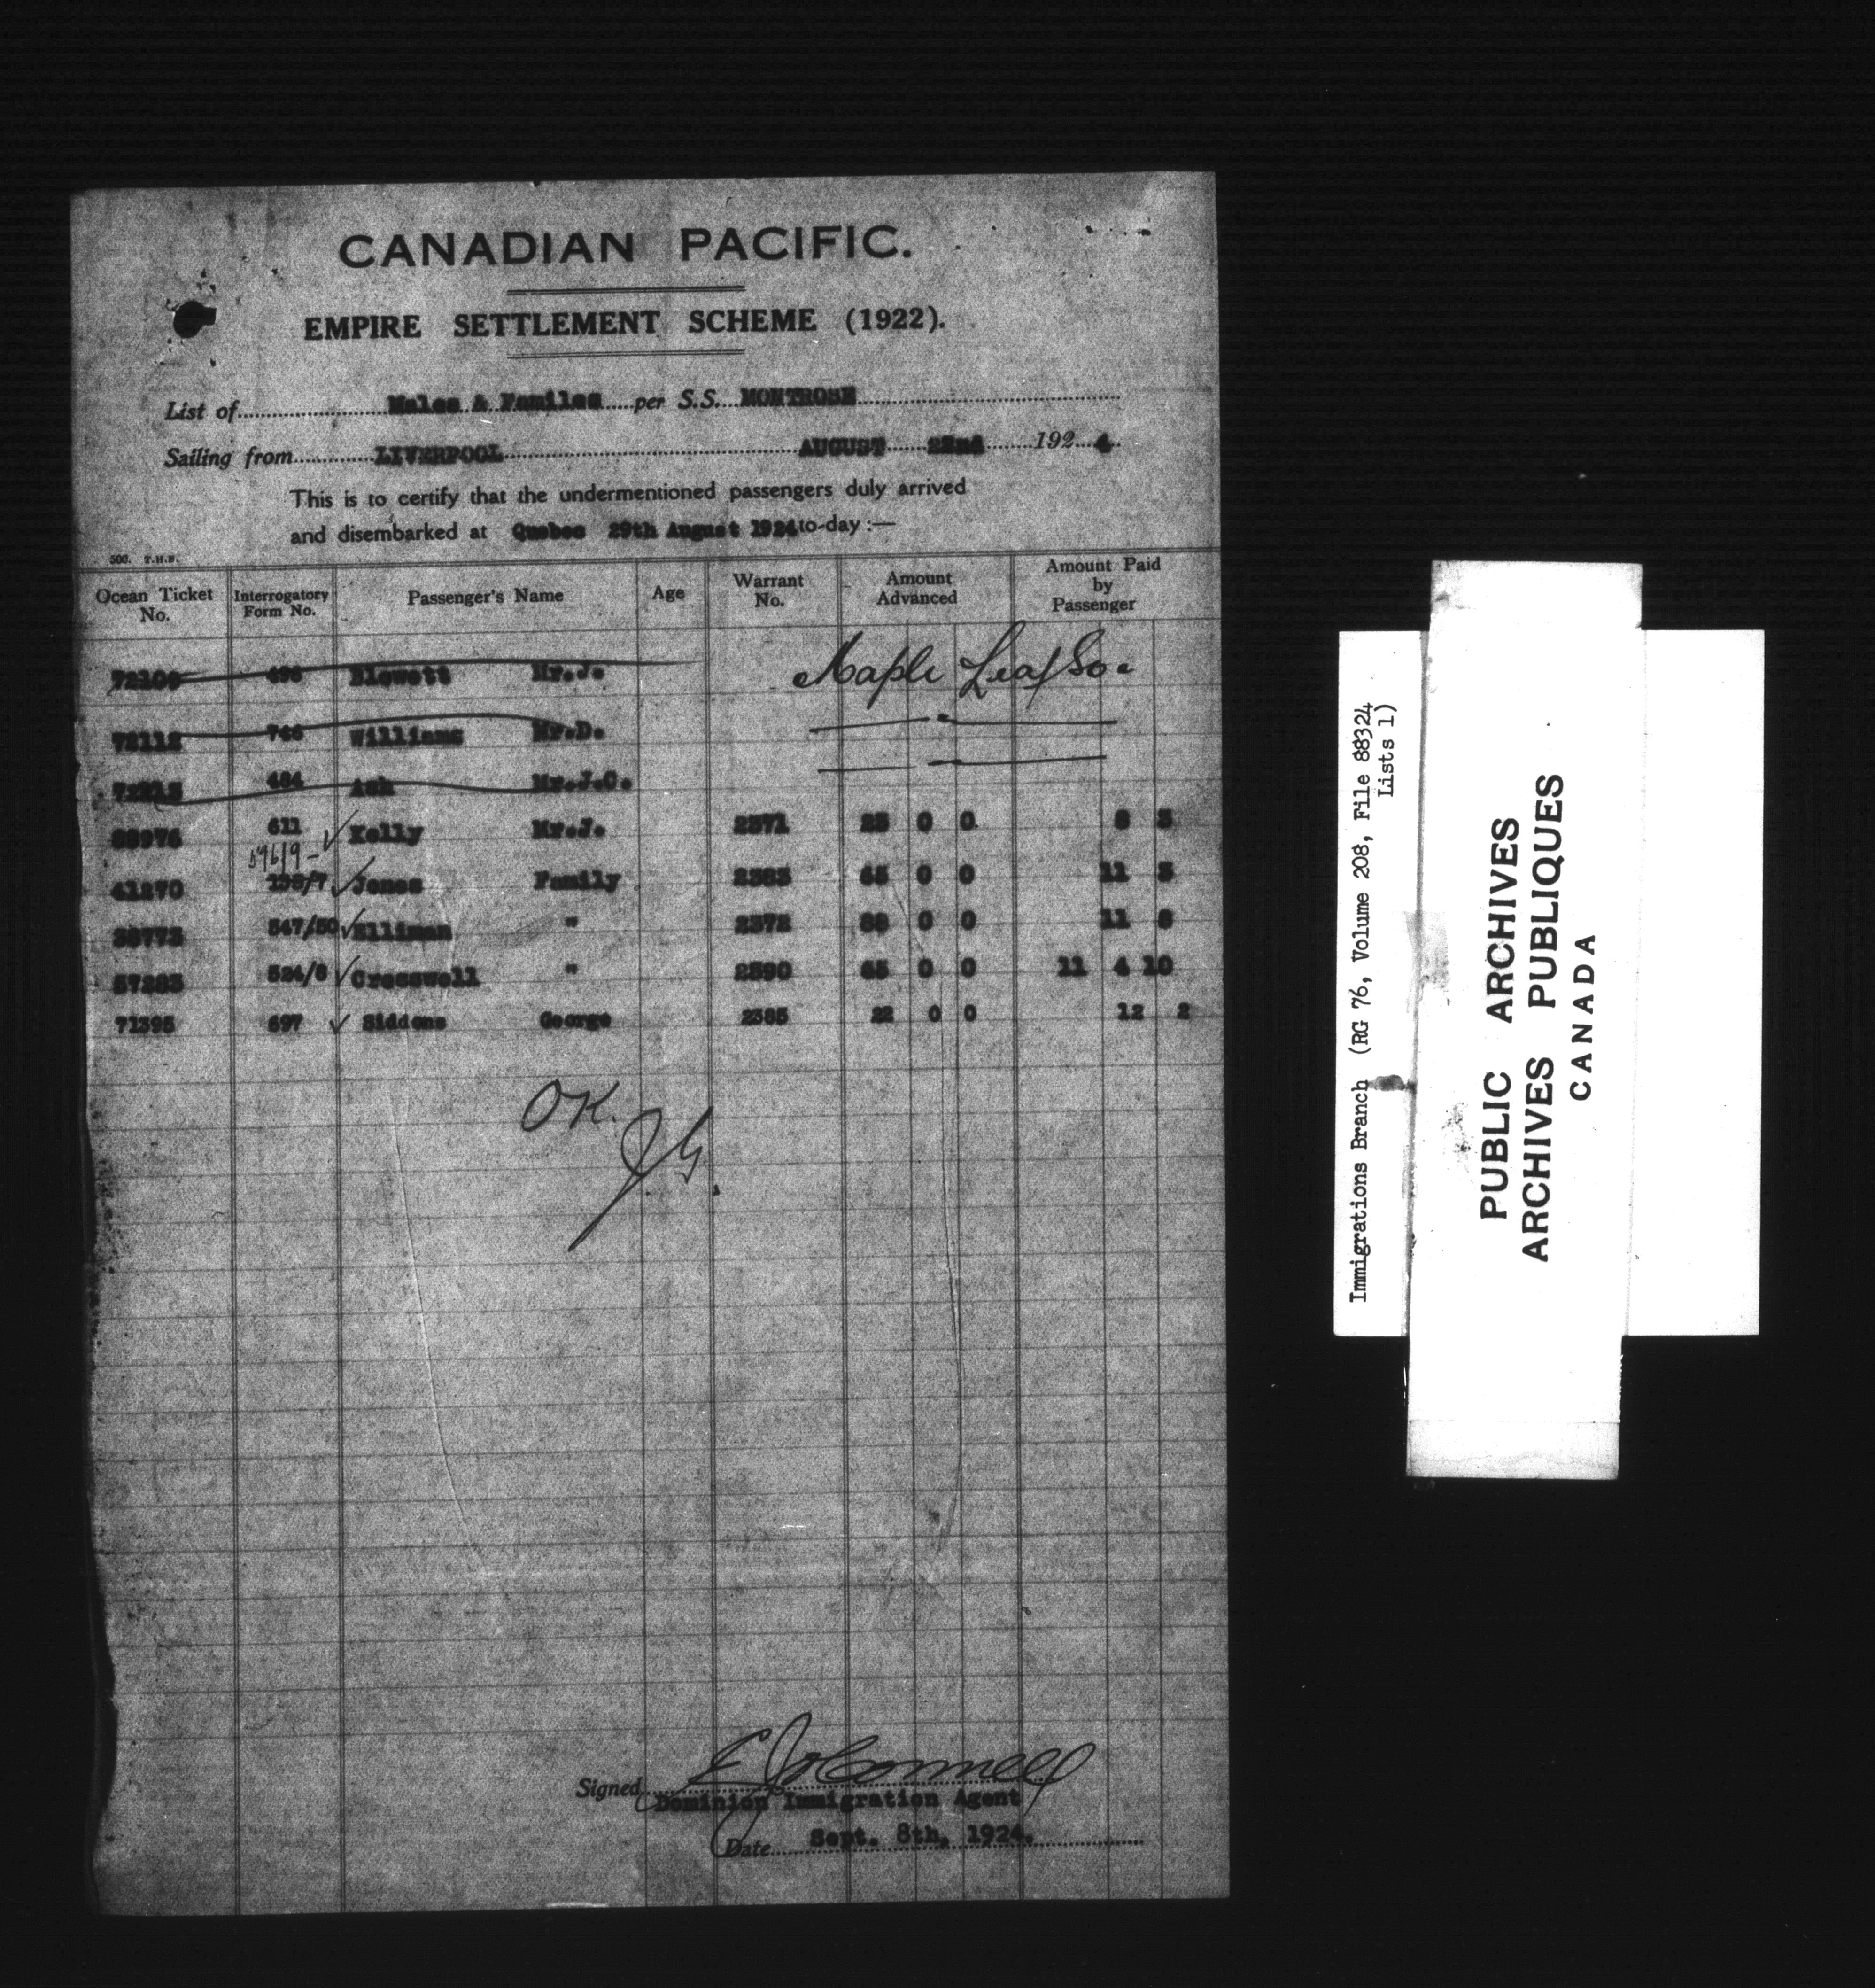 CANADIAN PACIFIC.
EMPIRE SETTLEMENT SCHEME (1922).
List of Males & Familes per S.S. MONTROSE
Sailing from LIVERPOOL AUGUST 22nd 1924
This is to certify that the undermentioned passengers duly arrived
and disembarked at Quebec 29th August 1924 to-day :—
500. T.H.B.
Ocean Ticket No. Interrogatory Form No. Passenger's Name Age Warrant No. Amount Advanced Amount Paid by Passenger
Blewett Mr.J. Maple Leaf So.
72112 746 Williams Mr.D.
484 Ash Mr.J.C.
611 ✓ Kelly Mr.J. 2371 0 0
41270 ✓ Jones Family 2383 0 0 11
547/50 ✓ Elliman " 2372 0 0 11
57283 ✓ Cresswell " 2390 65 0 0 11 4 10
71395 697 ✓ Siddons George 2385 22 0 0 12 2
OK.
JG.
Signed
Dominion Immigration Agent
Date Sept. 8th, 1924.
Immigrations Branch (RG 76, Volume 208, File 88324
Lists 1)
PUBLIC ARCHIVES
ARCHIVES PUBLIQUES
CANADA